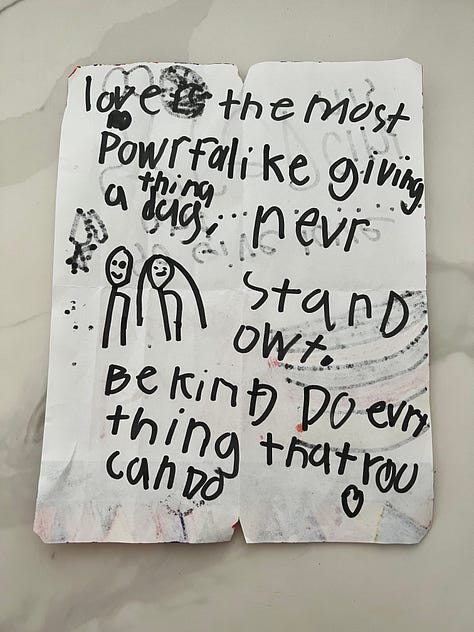 love the most
Powrfalike giving
thing
a
nevr
Stand
owt.
Be KinD Do evry
thing that you
can Do